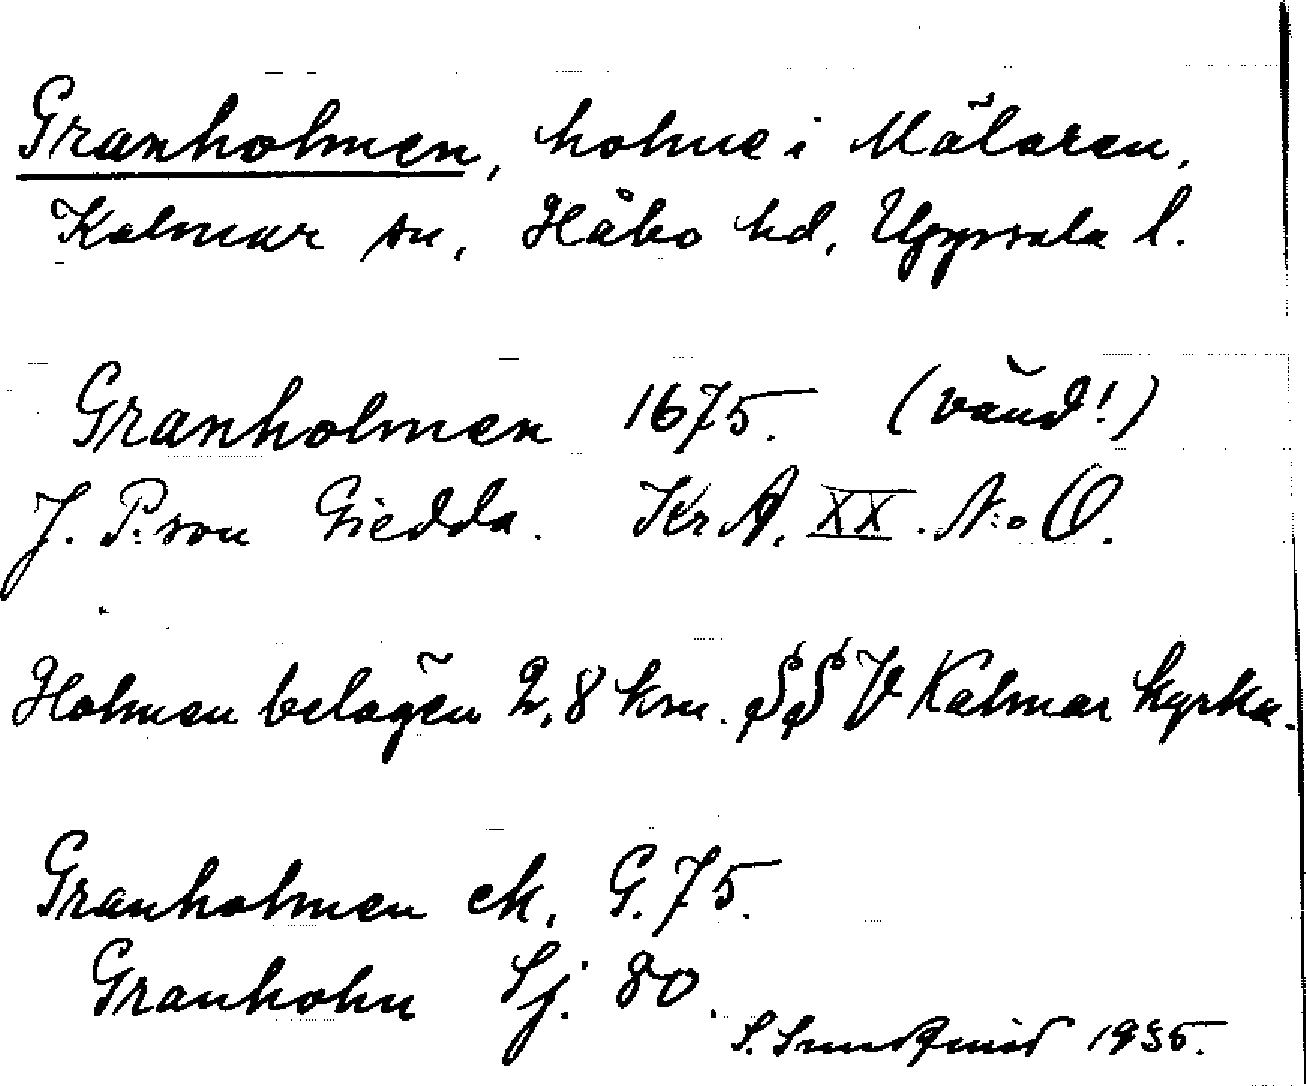 Granholmen, holme i Mälaren,
Kalmar sn, Håbo hd, Uppsala l.
Granholmen 1675. (vänd!)
J. P:son Giedda. KrA. XX. N:o O.
Holmen belägen 2,8 km. SSV Kalmar kyrka.
Granholmen ek. G. 75.
Granholm Sj. 80.
S. Sundqvist 1935.